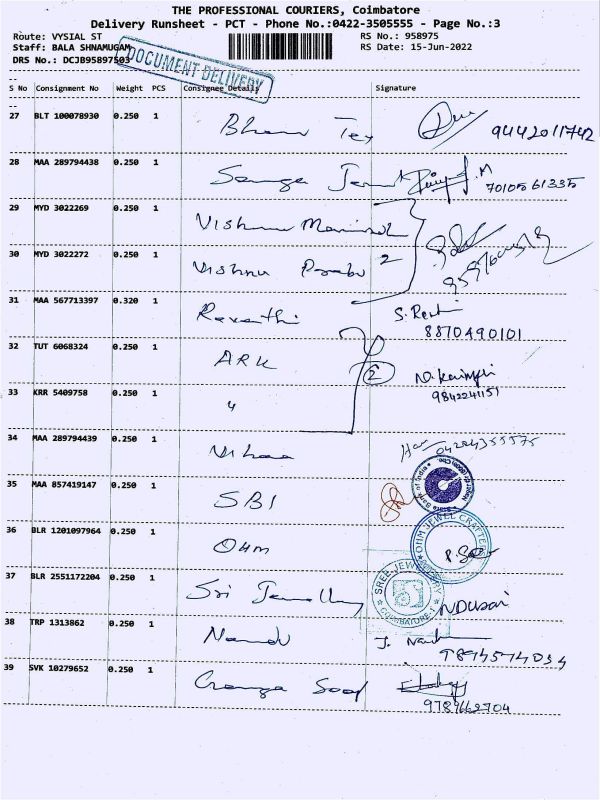 THE PROFESSIONAL COURIERS, Coimbatore
Delivery Runsheet - PCT - Phone No.:0422-3505555 - Page No.:3
Route: VYSIAL ST RS No.: 958975
Staff: BALA SHNAMUGAM RS Date: 15-Jun-2022
DRS No.: DCJB95897503
DOCUMENT DELIVERY
S No Consignment No Weight PCS Consignee Details Signature
27 BLT 100078930 0.250 1 Tex 9442011742
28 MAA 289794438 0.250 1 7010561335
29 MYD 3022269 0.250 1 Vishnu
30 MYD 3022272 0.250 1 Vishnu Prabu 2
31 MAA 567713397 0.320 1 Revathi S. 8870490101
32 TUT 6068324 0.250 1 ARK 2
33 KRR 5409758 0.250 1 " 9842241151
34 MAA 289794439 0.250 1
35 MAA 857419147 0.250 1 SBI
State Bank of India
36 BLR 1201097964 0.250 1 Ohm
OHM JEWEL CRAFTER
37 BLR 2551172204 0.250 1 Sri Jewellery N Durai
SREE JEWELLERY
COIMBATORE-1
38 TRP 1313862 0.250 1 Nandu J.
39 SVK 10279652 0.250 1 Ganga Soap 9789662704